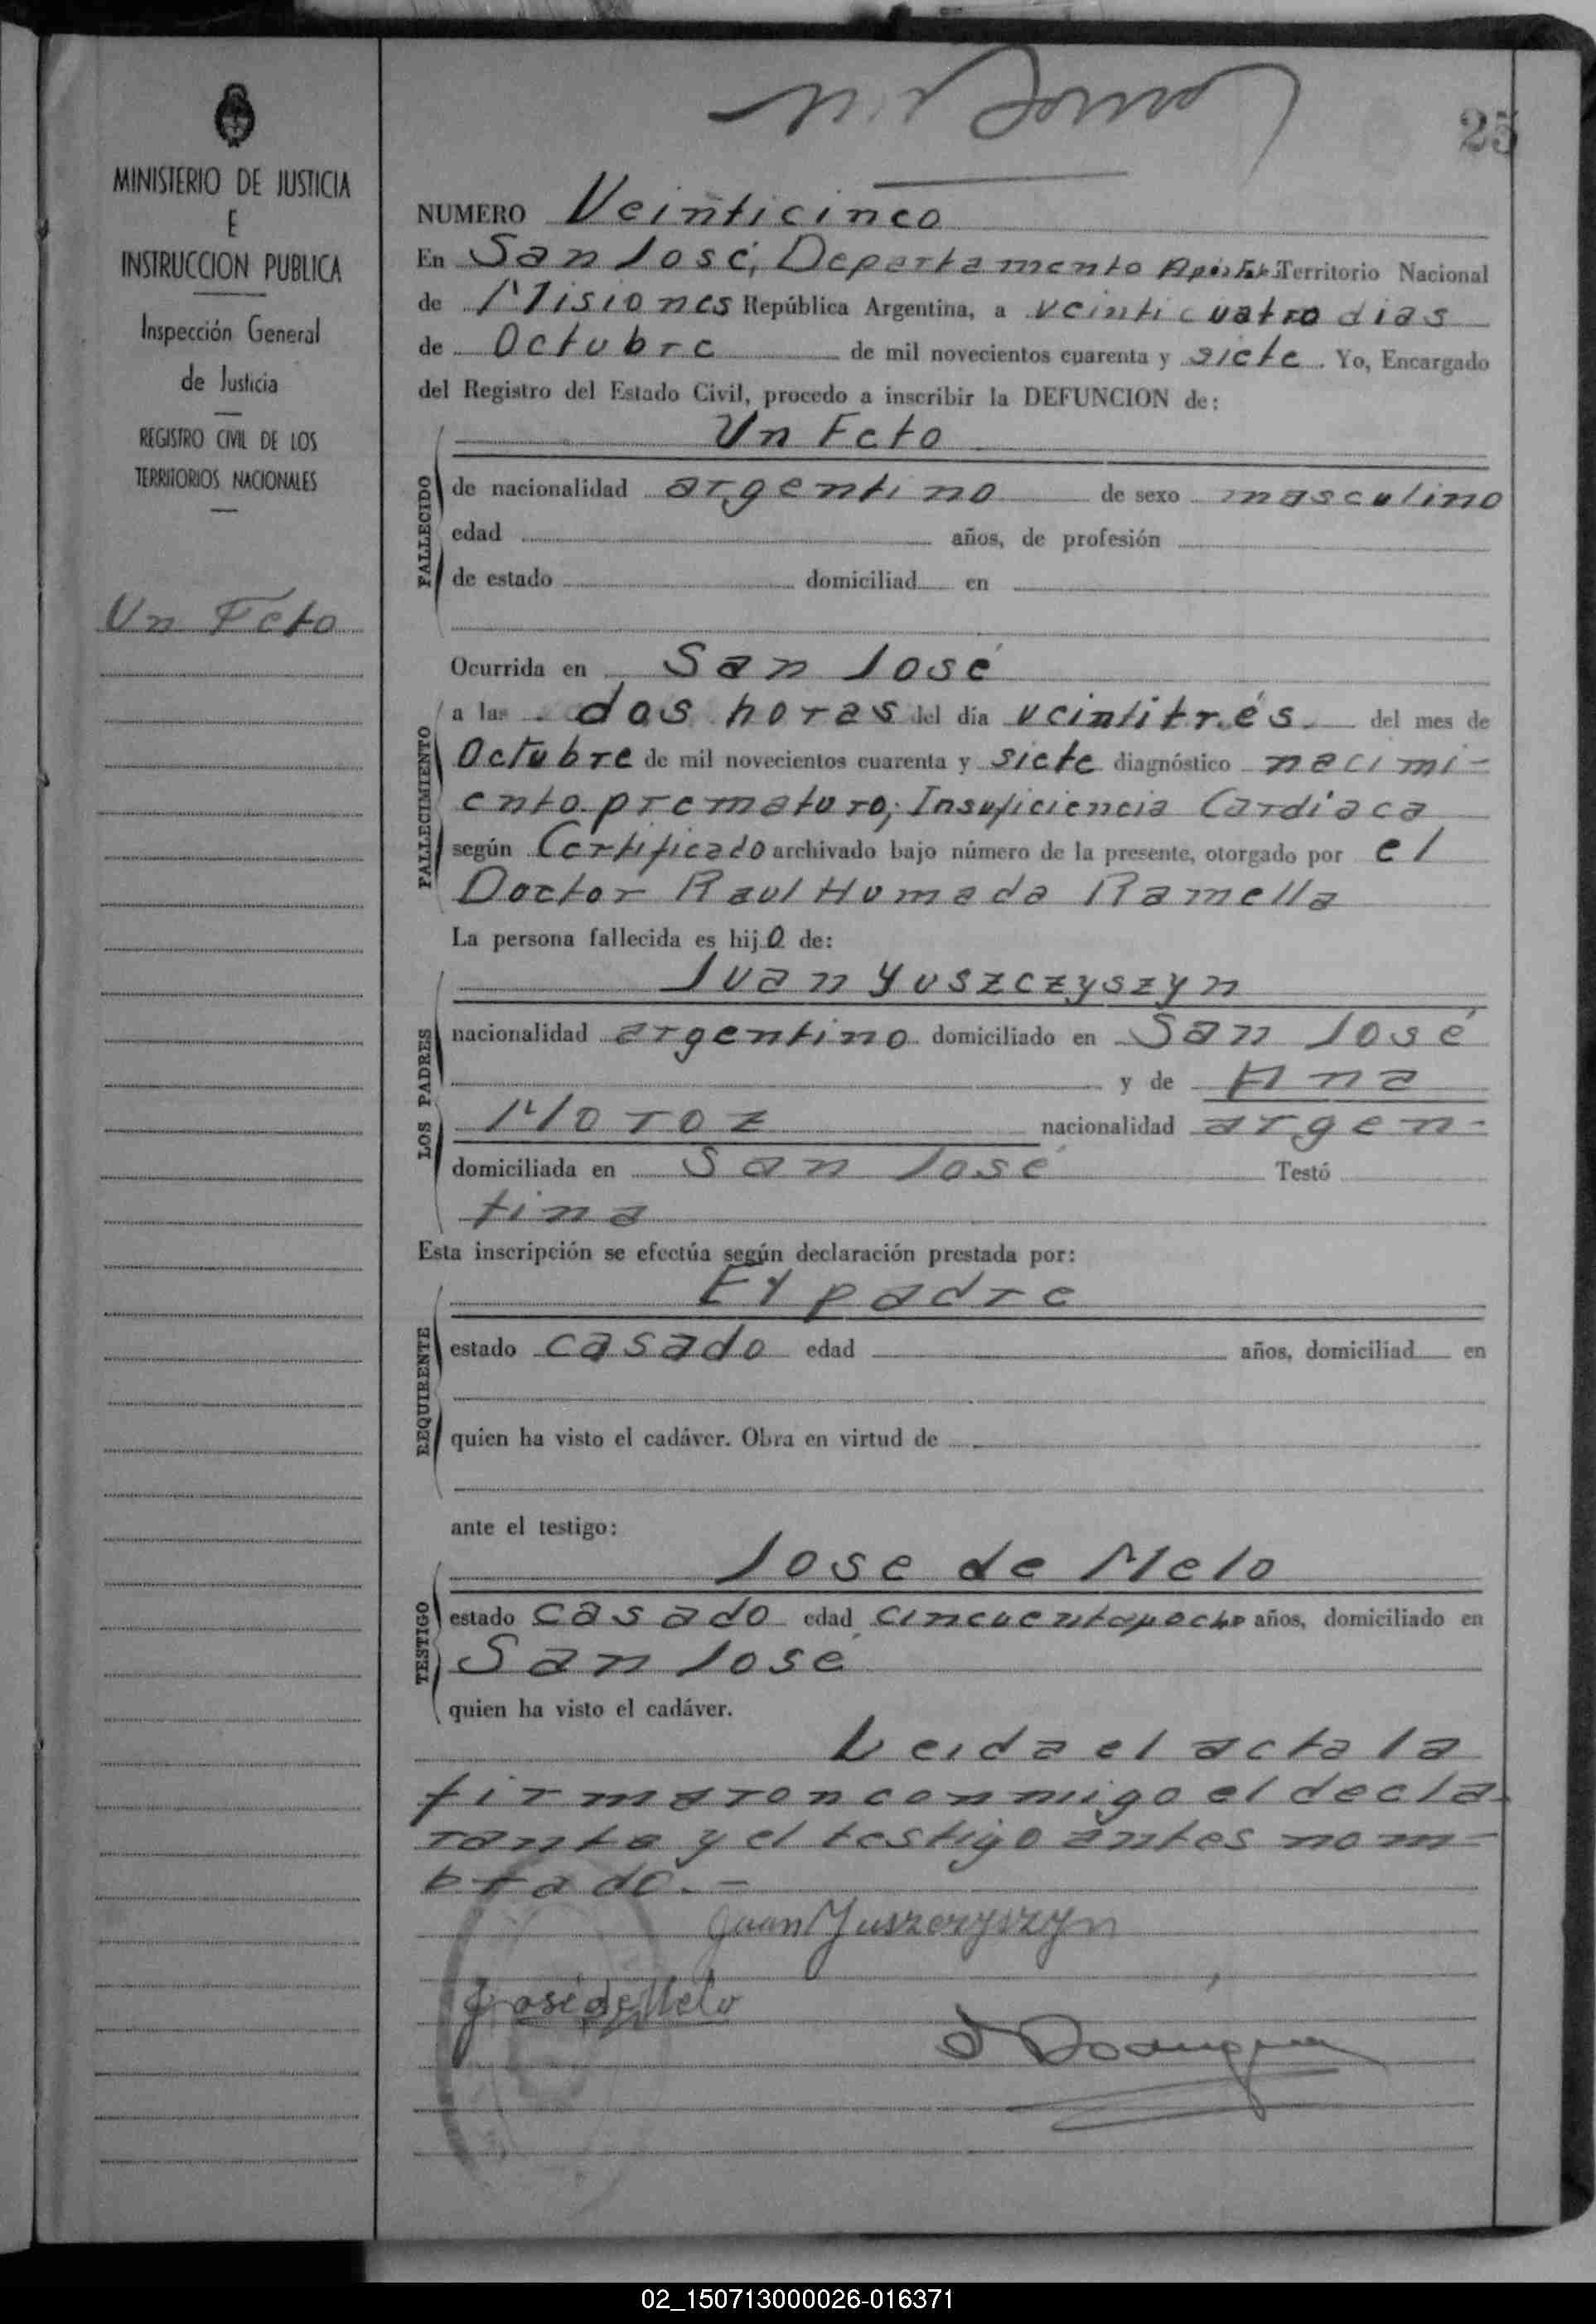 25
MINISTERIO DE JUSTICIA
E
INSTRUCCION PUBLICA
Inspección General
de Justicia
REGISTRO CIVIL DE LOS
TERRITORIOS NACIONALES
Un Feto
NUMERO Veinticinco
En San José, Departamento Territorio Nacional
de Misiones República Argentina, a veinticuatro dias
de Octubre de mil novecientos cuarenta y siete. Yo, Encargado
del Registro del Estado Civil, procedo a inscribir la DEFUNCION de:
Un Feto
FALLECIDO
de nacionalidad argentino de sexo masculino
edad años, de profesión
de estado domiciliad en
Ocurrida en San José
FALLECIMIENTO
a las dos horas del día veintitrés. del mes de
Octubre de mil novecientos cuarenta y siete diagnóstico nacimi-
ento prematuro, Insuficiencia Cardiaca
según Certificado archivado bajo número de la presente, otorgado por el
Doctor Raul Humada Ramella
La persona fallecida es hijo de:
Juan Yuszczyszyn
LOS PADRES
nacionalidad argentino domiciliado en San José
y de Ana
Moroz nacionalidad argen-
domiciliada en San José Testó
tina
Esta inscripción se efectúa según declaración prestada por:
El padre
REQUIRENTE
estado casado edad años, domiciliad en
quien ha visto el cadáver. Obra en virtud de
ante el testigo:
Jose de Melo
TESTIGO
estado casado edad cincuentayocho años, domiciliado en
San José
quien ha visto el cadáver.
Leida el acta la
firmaron conmigo el decla
rante y el testigo antes nom-
brado.-
Juan Yuszczyszyn
José de Melo
02_150713000026-016371